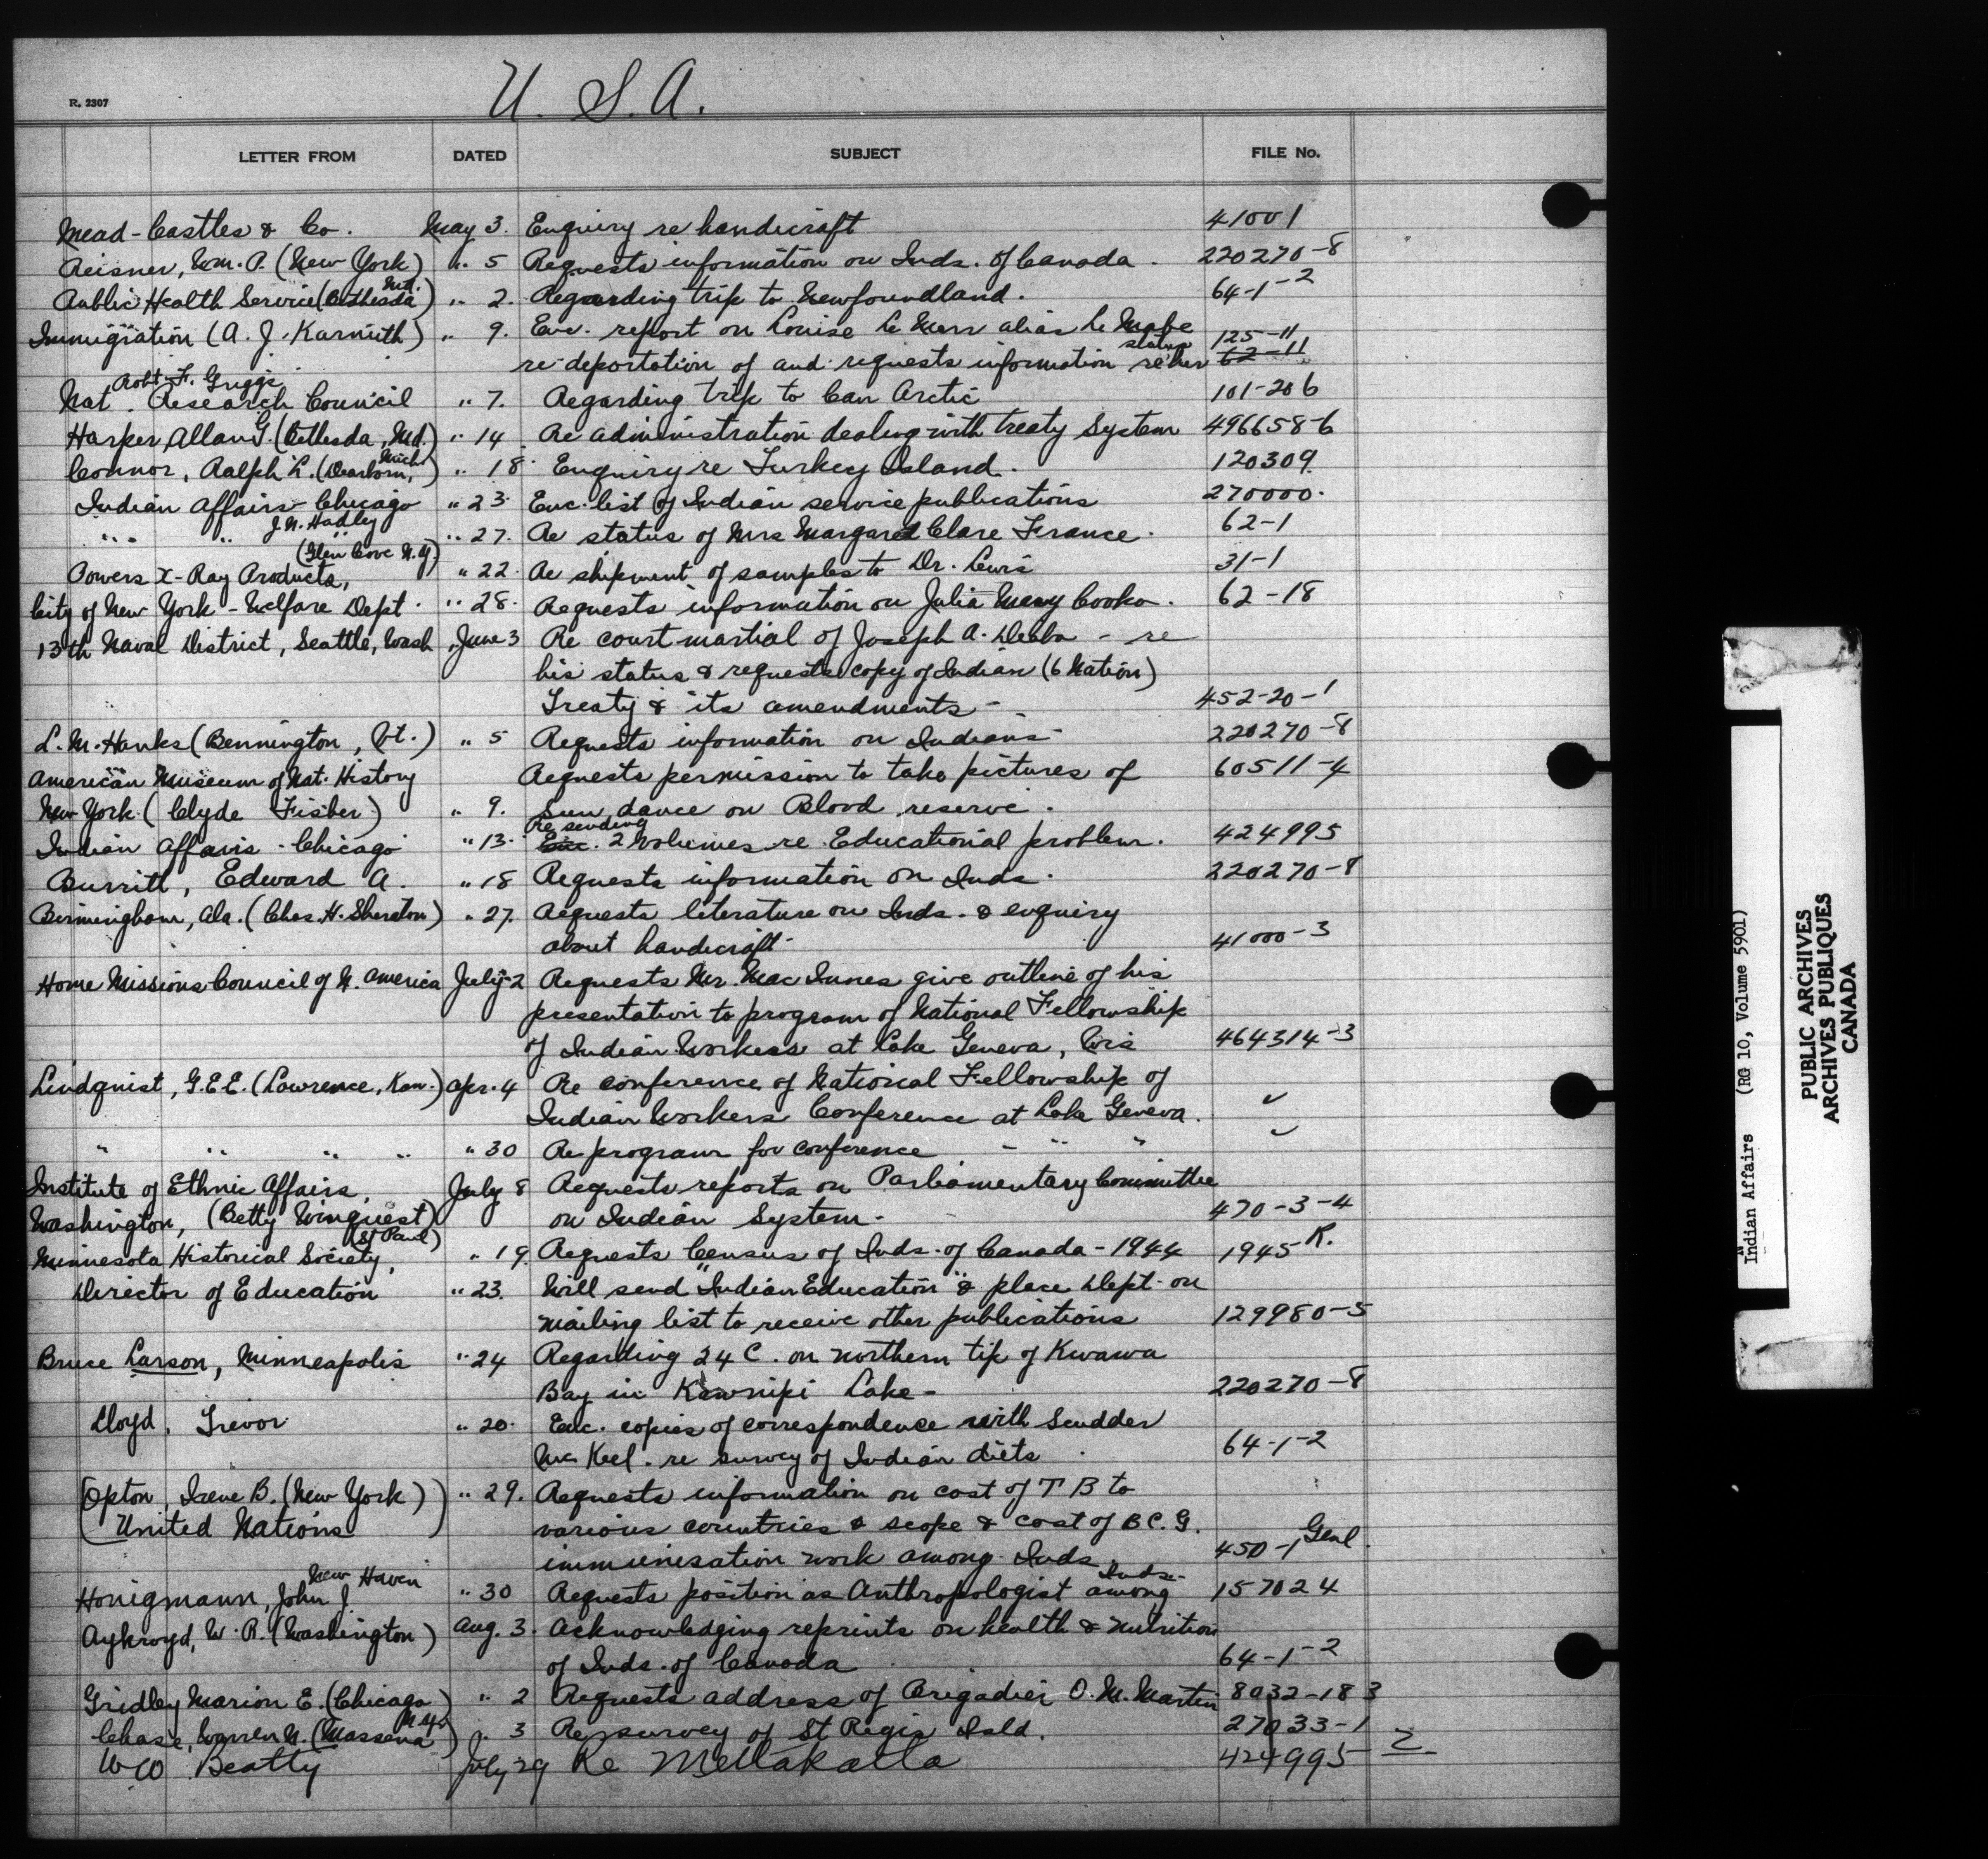 U. S. A.
R. 2307
LETTER FROM DATED SUBJECT FILE No.
Mead-Castles & Co. May 3. Enquiry re handicraft 41001
Reisner, Wm. P. (New York) " 5 Requests information on Inds. of Canada. 220270-8
Public Health Service (Bethesda Md.) " 2. Regarding trip to Newfoundland. 64-1-2
Immigration (A. J. Karnuth) " 9. Enc. report on Louise Le
re deportation of and requests information re her status 125-11 62-11
Robt F. Griggs
Nat. Research Council " 7. Regarding trip to Can Arctic 101-206
Harper, Allan G. (Bethesda, Md.) " 14 Re administration dealing with treaty System 496658-6
Connor, Ralph L. (Dearborn, Mich) " 18 Enquiry re Turkey Island. 120309
Indian Affairs - Chicago " 23. Enc. list of Indian service publications 270000.
" " J. N. Hadley " 27. Re status of Mrs Margaret Clare France. 62-1
Powers X-Ray Products, (Glen Cove N.Y.) " 22. Re shipment of samples to Dr. Lewis 31-1
City of New York - Welfare Dept. " 28. Requests information on Julia Mary Cooke. 62-18
13th Naval District, Seattle, Wash June 3 Re court martial of Joseph A. - re
his status & requests copy of Indian (6 Nation)
Treaty & its amendments - 452-20-1
L. M. Hanks (Bennington, Vt.) " 5 Requests information on Indians 220270-8
American Museum of Nat. History Requests permission to take pictures of 60511-4
New York (Clyde Fisher) " 9. Sun dance on Blood reserve.
Indian Affairs - Chicago " 13. Enc. Re sending 2 Volumes re Educational problem. 424995
Burritt, Edward A. " 18 Requests information on Inds. 220270-8
Birmingham, Ala. (Chas. H. Sheraton) " 27. Requests literature on Inds. & enquiry
about handicraft 41000-3
Home Missions Council of N. America July 2 Requests Mr. MacInnes give outline of his
presentation to program of National Fellowship
of Indian Workers at Lake Geneva, Wis 464314-3
Lindquist, G.E.E. (Lawrence, Kan.) Apr. 4 Re conference of National Fellowship of
Indian Workers Conference at Lake Geneva. ✓
" " " " " 30 Re program for conference - " " ✓
Institute of Ethnic Affairs, July 8 Requests reports on Parliamentary Committee
Washington, (Betty Winquest) on Indian System. 470-3-4
Minnesota Historical Society, (St Paul) " 19. Requests Census of Inds. of Canada - 1944 1945 R.
Director of Education " 23. Will send "Indian Education" & place Dept. on
mailing list to receive other publications 129980-5
Bruce Larson, Minneapolis " 24 Regarding 24 C. on northern tip of Kwawa
Bay in Kawnipi Lake - 220270-8
Lloyd, Trevor " 20. Enc. copies of correspondence with Scudder
Mc Keel. re survey of Indian diets. 64-1-2
(Opton, Irene B. (New York)) " 29. Requests information on cost of T B to
(United Nations) various countries & scope & cost of B C. G.
immunisation work among Inds. 450-1 Genl.
Honigmann, John J. New Haven " 30 Requests position as Anthropologist among Inds. 157024
Aykroyd, W. R. (Washington) Aug. 3. Acknowledging reprints on health & nutrition
of Inds. of Canada 64-1-2
Gridley Marion E. (Chicago) " 2 Requests address of Brigadier O. M. Martin 8032-183
Chase, Warren N. (Massena N.Y.) " 3 Re survey of St Regis Isld. 27033-1
W W Beatty July 29 Re Metlakatla 424995 2
Indian Affairs (RG 10, Volume 5901)
PUBLIC ARCHIVES
ARCHIVES PUBLIQUES
CANADA